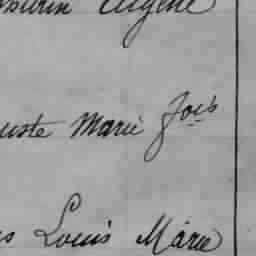 Eugène
uste Marie Fois
s Louis Marie